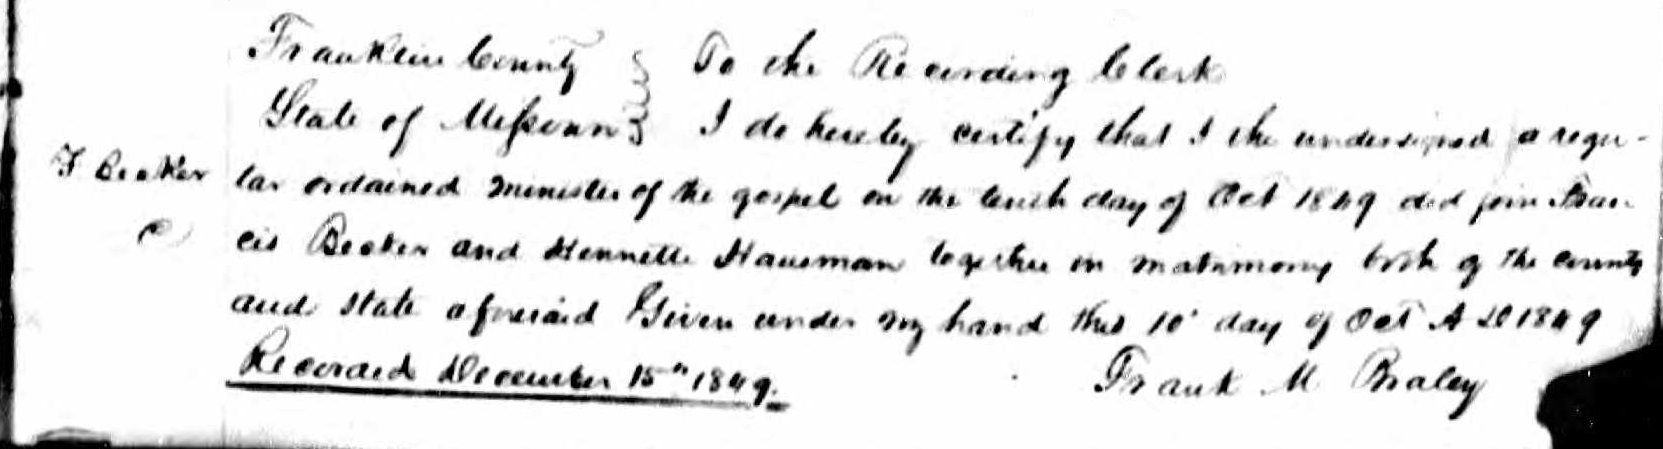 Franklin County } To the Recording Clerk
State of Missouri } I do hereby certify that I the undersigned a regu-
F Becker lar ordained minister of the gospel on the tenth day of Oct 1849 did join Fran
cis Becker and Hennette Hausman together in matrimony both of the county
and State aforesaid Given under my hand this 10 day of Oct A D 1849
Recorded December 15th 1849. Frank M